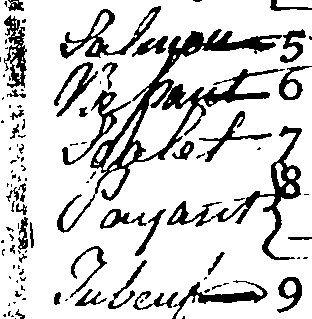 Salmon 5
Vi pant 6
Sablet 7
Payant 8
Tubeuf 9